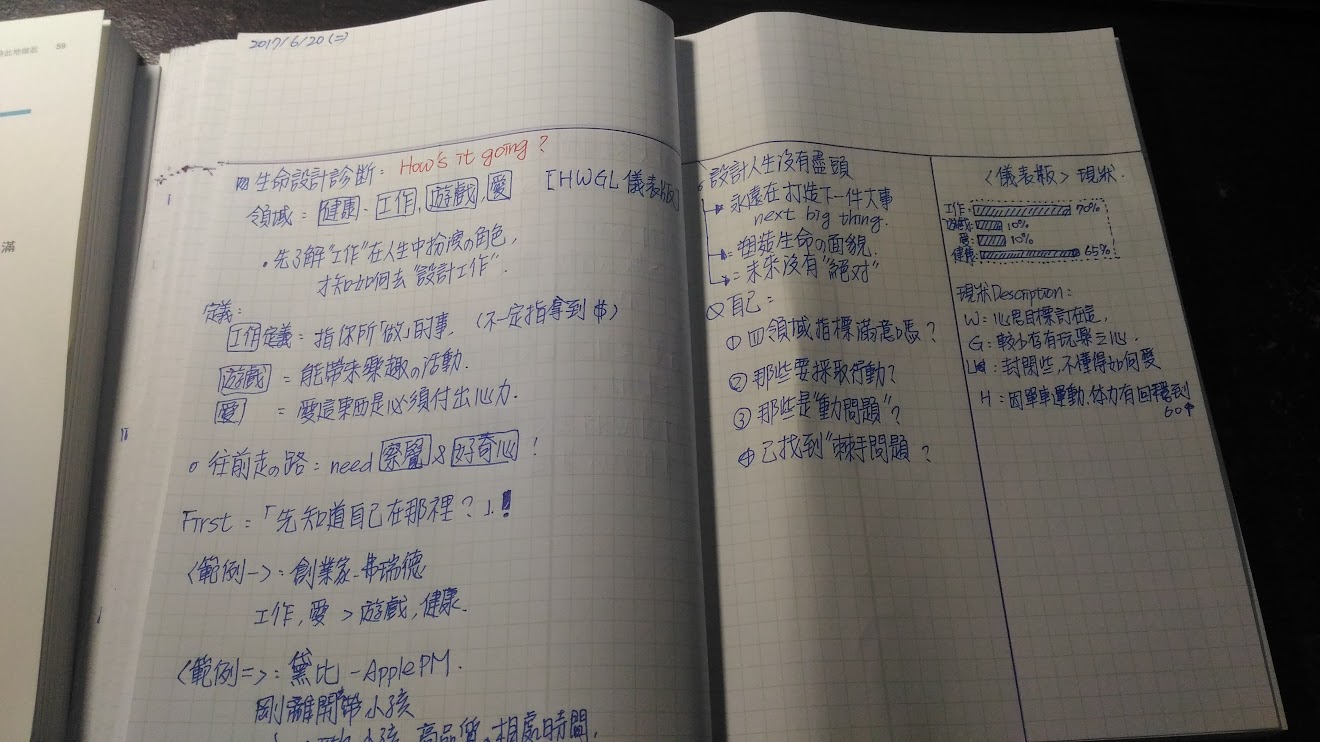 59
滿
2017/6/20(二)
生命設計診斷: How's it going?
[HWGL 儀表版]
領域: 健康、工作、遊戲、愛
・先了解"工作"在人生中扮演の角色,
才知如何去"設計工作".
定義:
工作定義=指你所「做」的事. (不一定指拿到$)
遊戲 = 能帶來樂趣の活動.
愛 = 愛這東西是必須付出心力.
○往前走の路: need 察覺 & 好奇心!
First:「先知道自己在那裡?」.!
〈範例一〉: 創業家-弗瑞德
工作,愛 > 遊戲,健康.
〈範例二〉: 黛比 -Apple PM.
剛離開帶小孩
小孩 高品質の相處時間.
設計人生沒有盡頭
永遠在打造下一件大事
next big thing.
=塑造生命の面貌.
=未來沒有"絕对"
Q自己:
① 四領域指標滿意嗎?
② 那些要採取行動?
③ 那些是"重力問題"?
④ 已找到"棘手問題?
〈儀表版〉現狀.
工作: 70%
遊戲: 10%
愛: 10%
健康: 65%
現狀Description:
W: 心思目標訂在這,
G: 較少有玩樂之心.
L: 封閉些,不懂得如何愛
H: 因單車運動.体力有回穩到
60↑